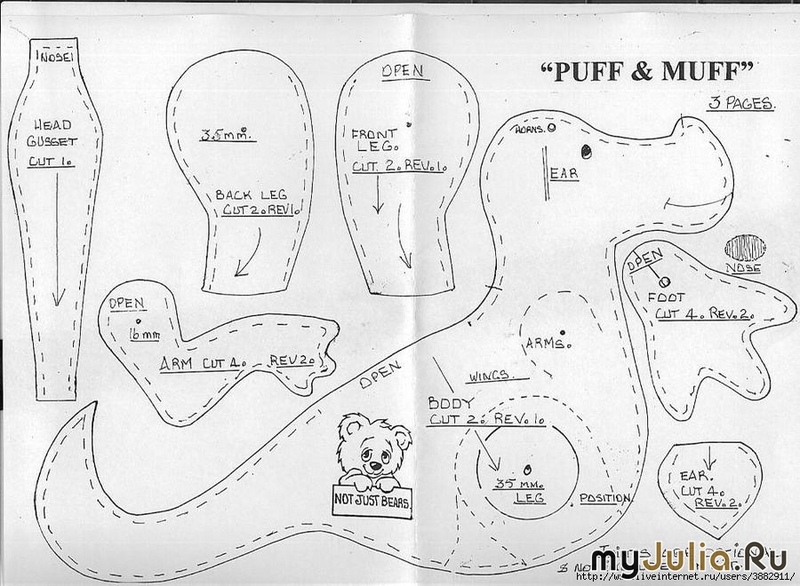 "PUFF & MUFF"
3 PAGES.
NOSE
HEAD
GUSSET
CUT 1.
35mm.
BACK LEG
CUT 2. REV 1.
OPEN
FRONT
LEG.
CUT. 2. REV. 1.
HORNS.
EAR
NOSE
OPEN
FOOT
CUT 4. REV. 2.
OPEN
16mm
ARM CUT 4. REV 2.
OPEN
ARMS.
WINGS.
BODY
CUT 2. REV. 1.
35 MM.
LEG POSITION
EAR.
CUT 4.
REV. 2.
NOT JUST BEARS.
myJulia.Ru